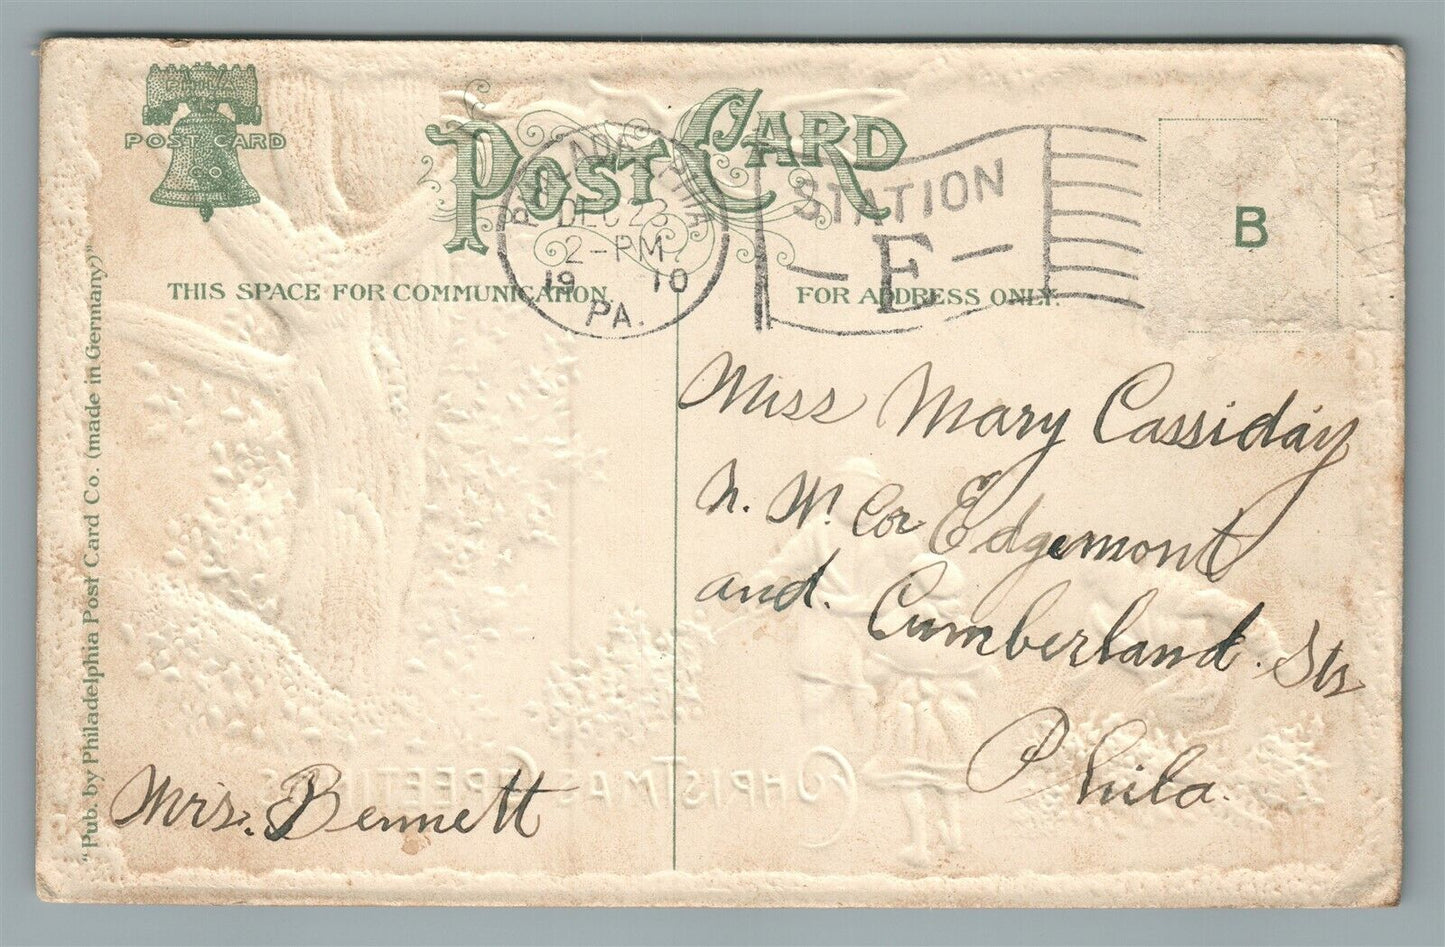 PHILA
POST CARD
CO
POST CARD
PHILADELPHIA
DEC 23
2-PM
1910
PA.
STATION
- E -
B
THIS SPACE FOR COMMUNICATION
FOR ADDRESS ONLY.
Miss Mary Cassiday
N. W. Cor Edgemont
and. Cumberland. Sts
Phila.
Mrs. Bennett
CHRISTMAS GREETINGS
"Pub. by Philadelphia Post Card Co. (made in Germany)"